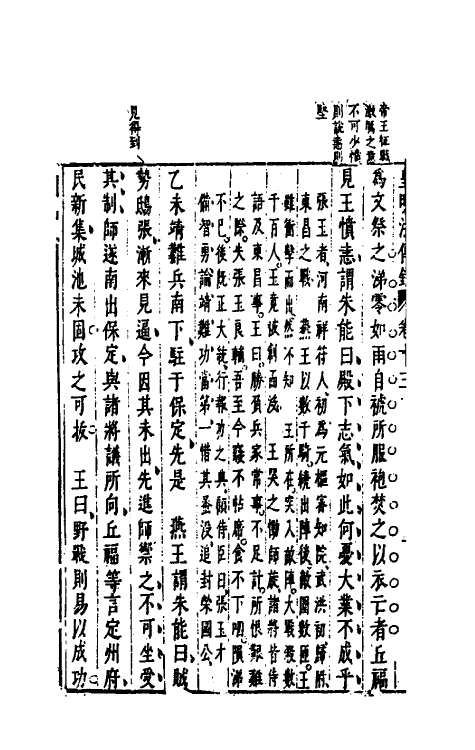 帝王征戰
激勵之意
不可少懈
則說悉則
堅
見得到
為文祭之涕零如雨自褫所服袍焚之以衣亡者丘福
見王憤恚謂朱能曰殿下志氣如此何憂大業不成乎
張玉者河南祥符人初為元樞密知院武洪初歸附
東昌之戰 燕王以數千騎繞出陣後敵圍數匝玉
雖衝擊而出然不知 王所在突入敵陣大戰殺數
千百人玉竟被創而歿 王哭之慟師旋諸將皆侍
語及東昌事王曰勝負兵家常事不足計所恨艱難
之際失張玉良輔吾至今寢不帖席食不下咽隕涕
不已後既正大統行報功之典顧侍臣曰張玉才
備智勇論靖難功當第一惜其蚤沒追封榮國公
乙未靖難兵南下駐于保定先是 燕王謂朱能曰賊
勢鴟張漸來見逼今因其未出先進師禦之不可坐受
其制師遂南出保定與諸將議所向丘福等言定州府
民新集城池未固攻之可拔 王曰野戰則易以成功